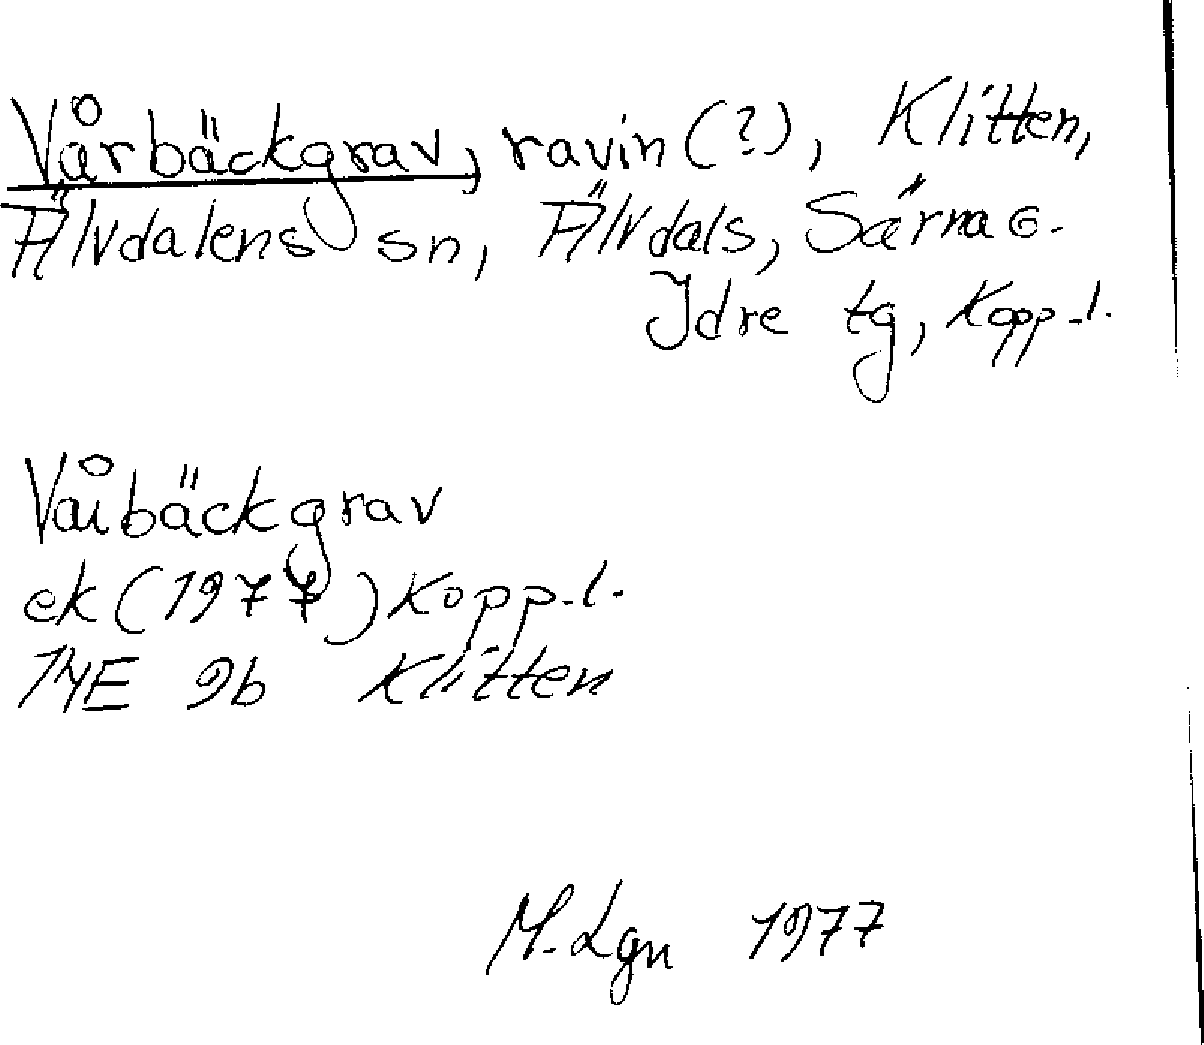 Vårbäckgrav, ravin (?), Klitten,
Älvdalens sn, Älvdals, Särna o.
Idre tg, Kopp. l.
Våibäckgrav
ek (1977) Kopp. l.
14E 9b Klitten
M. Lgn 1977